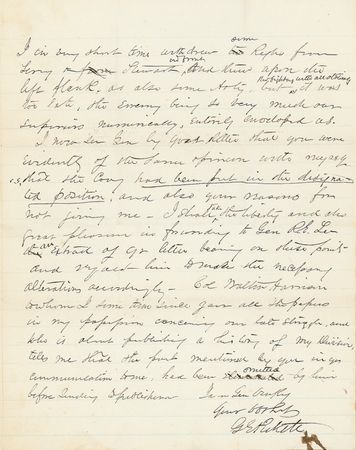 I in very short time withdrew some Regts from
Terry & Stewart, and threw upon the
left flank, as also some Arty, but it was
too late, the enemy being so very much our
superiors numerically, entirely enveloped us.
I now see Gen by your letter that you were
evidently of the same opinion with myself
that the Cavy had been put in the designa-
ted position, and also your reasons for
not joining me - I shall take the liberty and also
great pleasure in forwarding to Gen R.E. Lee
an extract of yr letter bearing on these points
and request him to make the necessary
alterations accordingly - Col Walter Harrison
to whom I some time since gave all the papers
in my possession concerning our late struggle, and
who is about publishing a history of my Division,
tells me that the part mentioned by you in yr
communication to me, had been omitted by him
before sending to publisher
I am Gen Truly
Your obt Svt
G E Pickett